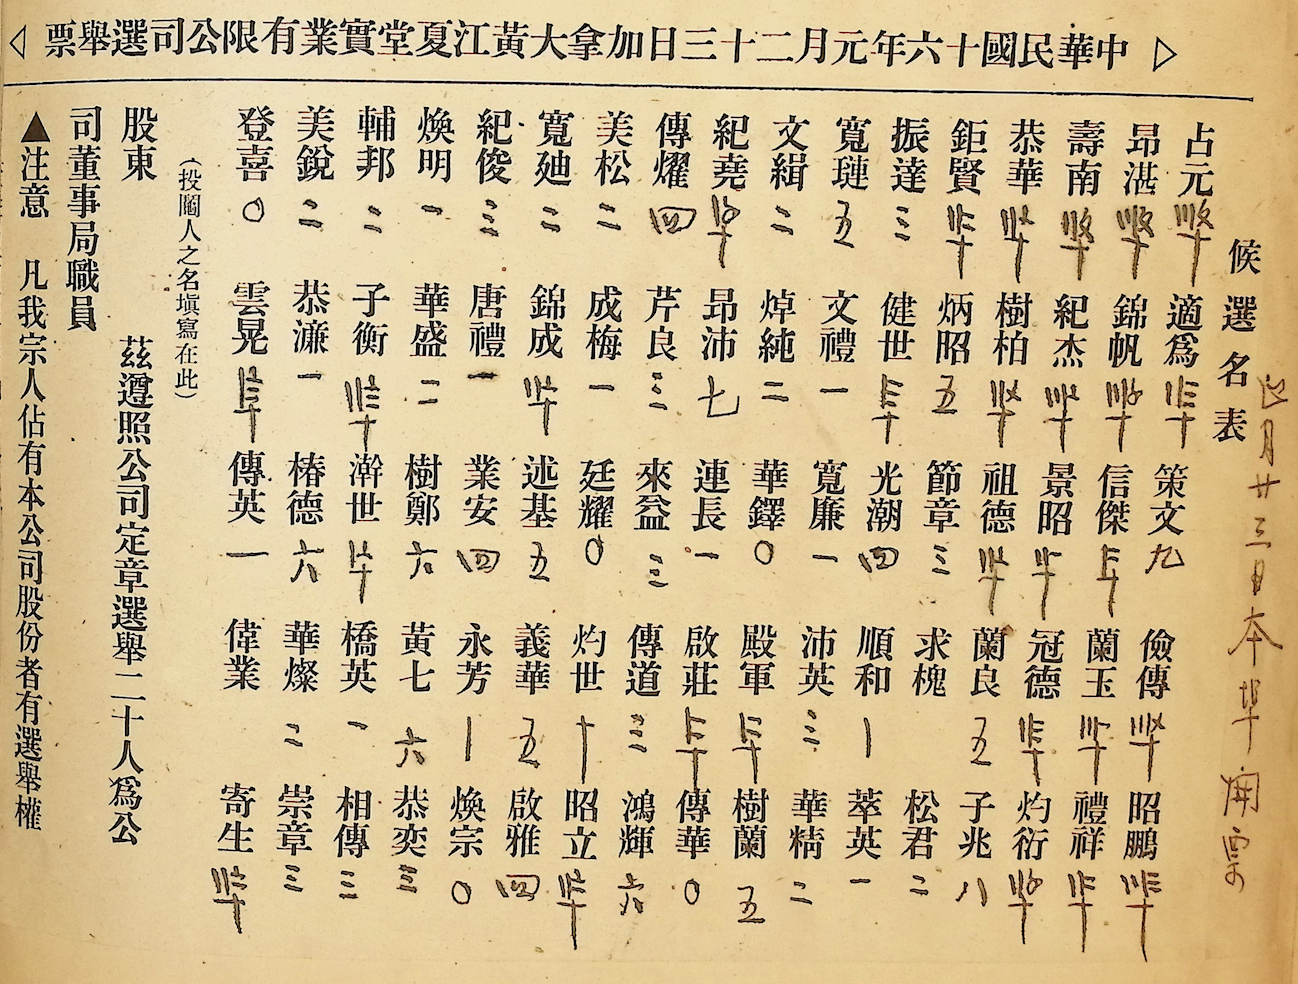 中華民國十六年元月二十三日加拿大黃江夏堂實業有限公司選舉票
月廿三日本埠開票
候選名表
占元 適爲 策文 九 儉傳 昭鵬
昂湛 錦帆 信傑 蘭玉 禮祥
壽南 紀杰 景昭 冠德 灼衍
恭華 樹柏 祖德 蘭良 五 子兆 八
鉅賢 炳昭 五 節章 三 求槐 松君 二
振達 三 健世 光潮 四 順和 〡 萃英 一
寬璉 五 文禮 一 寬廉 一 沛英 三 華精 二
文緝 二 焯純 二 華鐸 0 殿軍 樹蘭 五
紀堯 昂沛 七 連長 一 啟莊 傳華 0
傳燿 四 芹良 三 來益 三 傳道 三 鴻輝 六
美松 二 成梅 一 廷耀 0 灼世 十 昭立
寬廸 二 錦成 述基 五 義華 五 啟雅 四
紀俊 三 唐禮 一 業安 四 永芳 〡 煥宗 0
煥明 一 華盛 二 樹鄭 六 黃七 六 恭奕 三
輔邦 二 子衡 澣世 橋英 一 相傳 三
美銳 二 恭濂 一 椿德 六 華燦 二 崇章 三
登喜 0 雲晃 傳英 一 偉業 寄生
（投鬮人之名塡寫在此）
股東 茲遵照公司定章選舉二十人爲公
司董事局職員
▲注意 凡我宗人佔有本公司股份者有選舉權